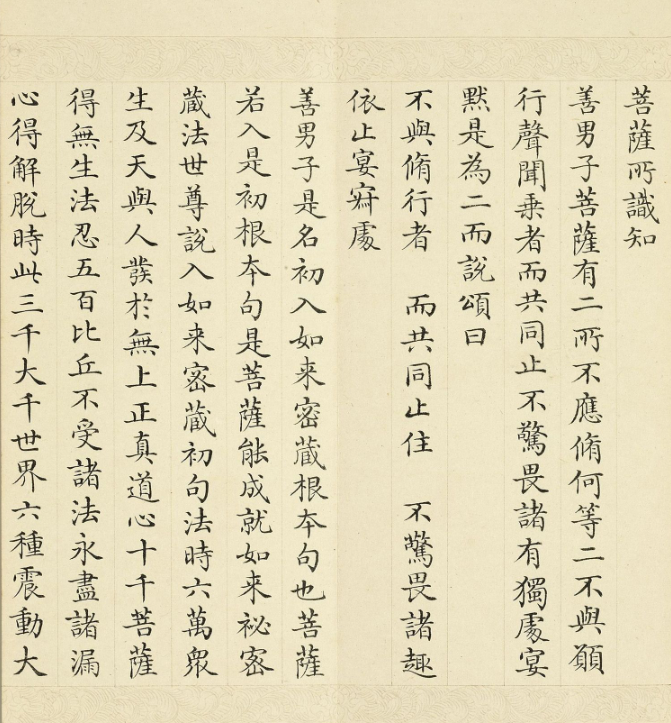 菩薩所識知
善男子菩薩有二所不應脩何等二不與願
行聲聞乗者而共同止不驚畏諸有獨處宴
黙是為二而説頌曰
不與脩行者　而共同止住　不驚畏諸趣
依止宴寂處
善男子是名初入如来密蔵根本句也菩薩
若入是初根本句是菩薩能成就如来祕密
蔵法世尊説入如来密蔵初句法時六萬衆
生及天與人發於無上正真道心十千菩薩
得無生法忍五百比丘不受諸法永盡諸漏
心得解脱時此三千大千世界六種震動大